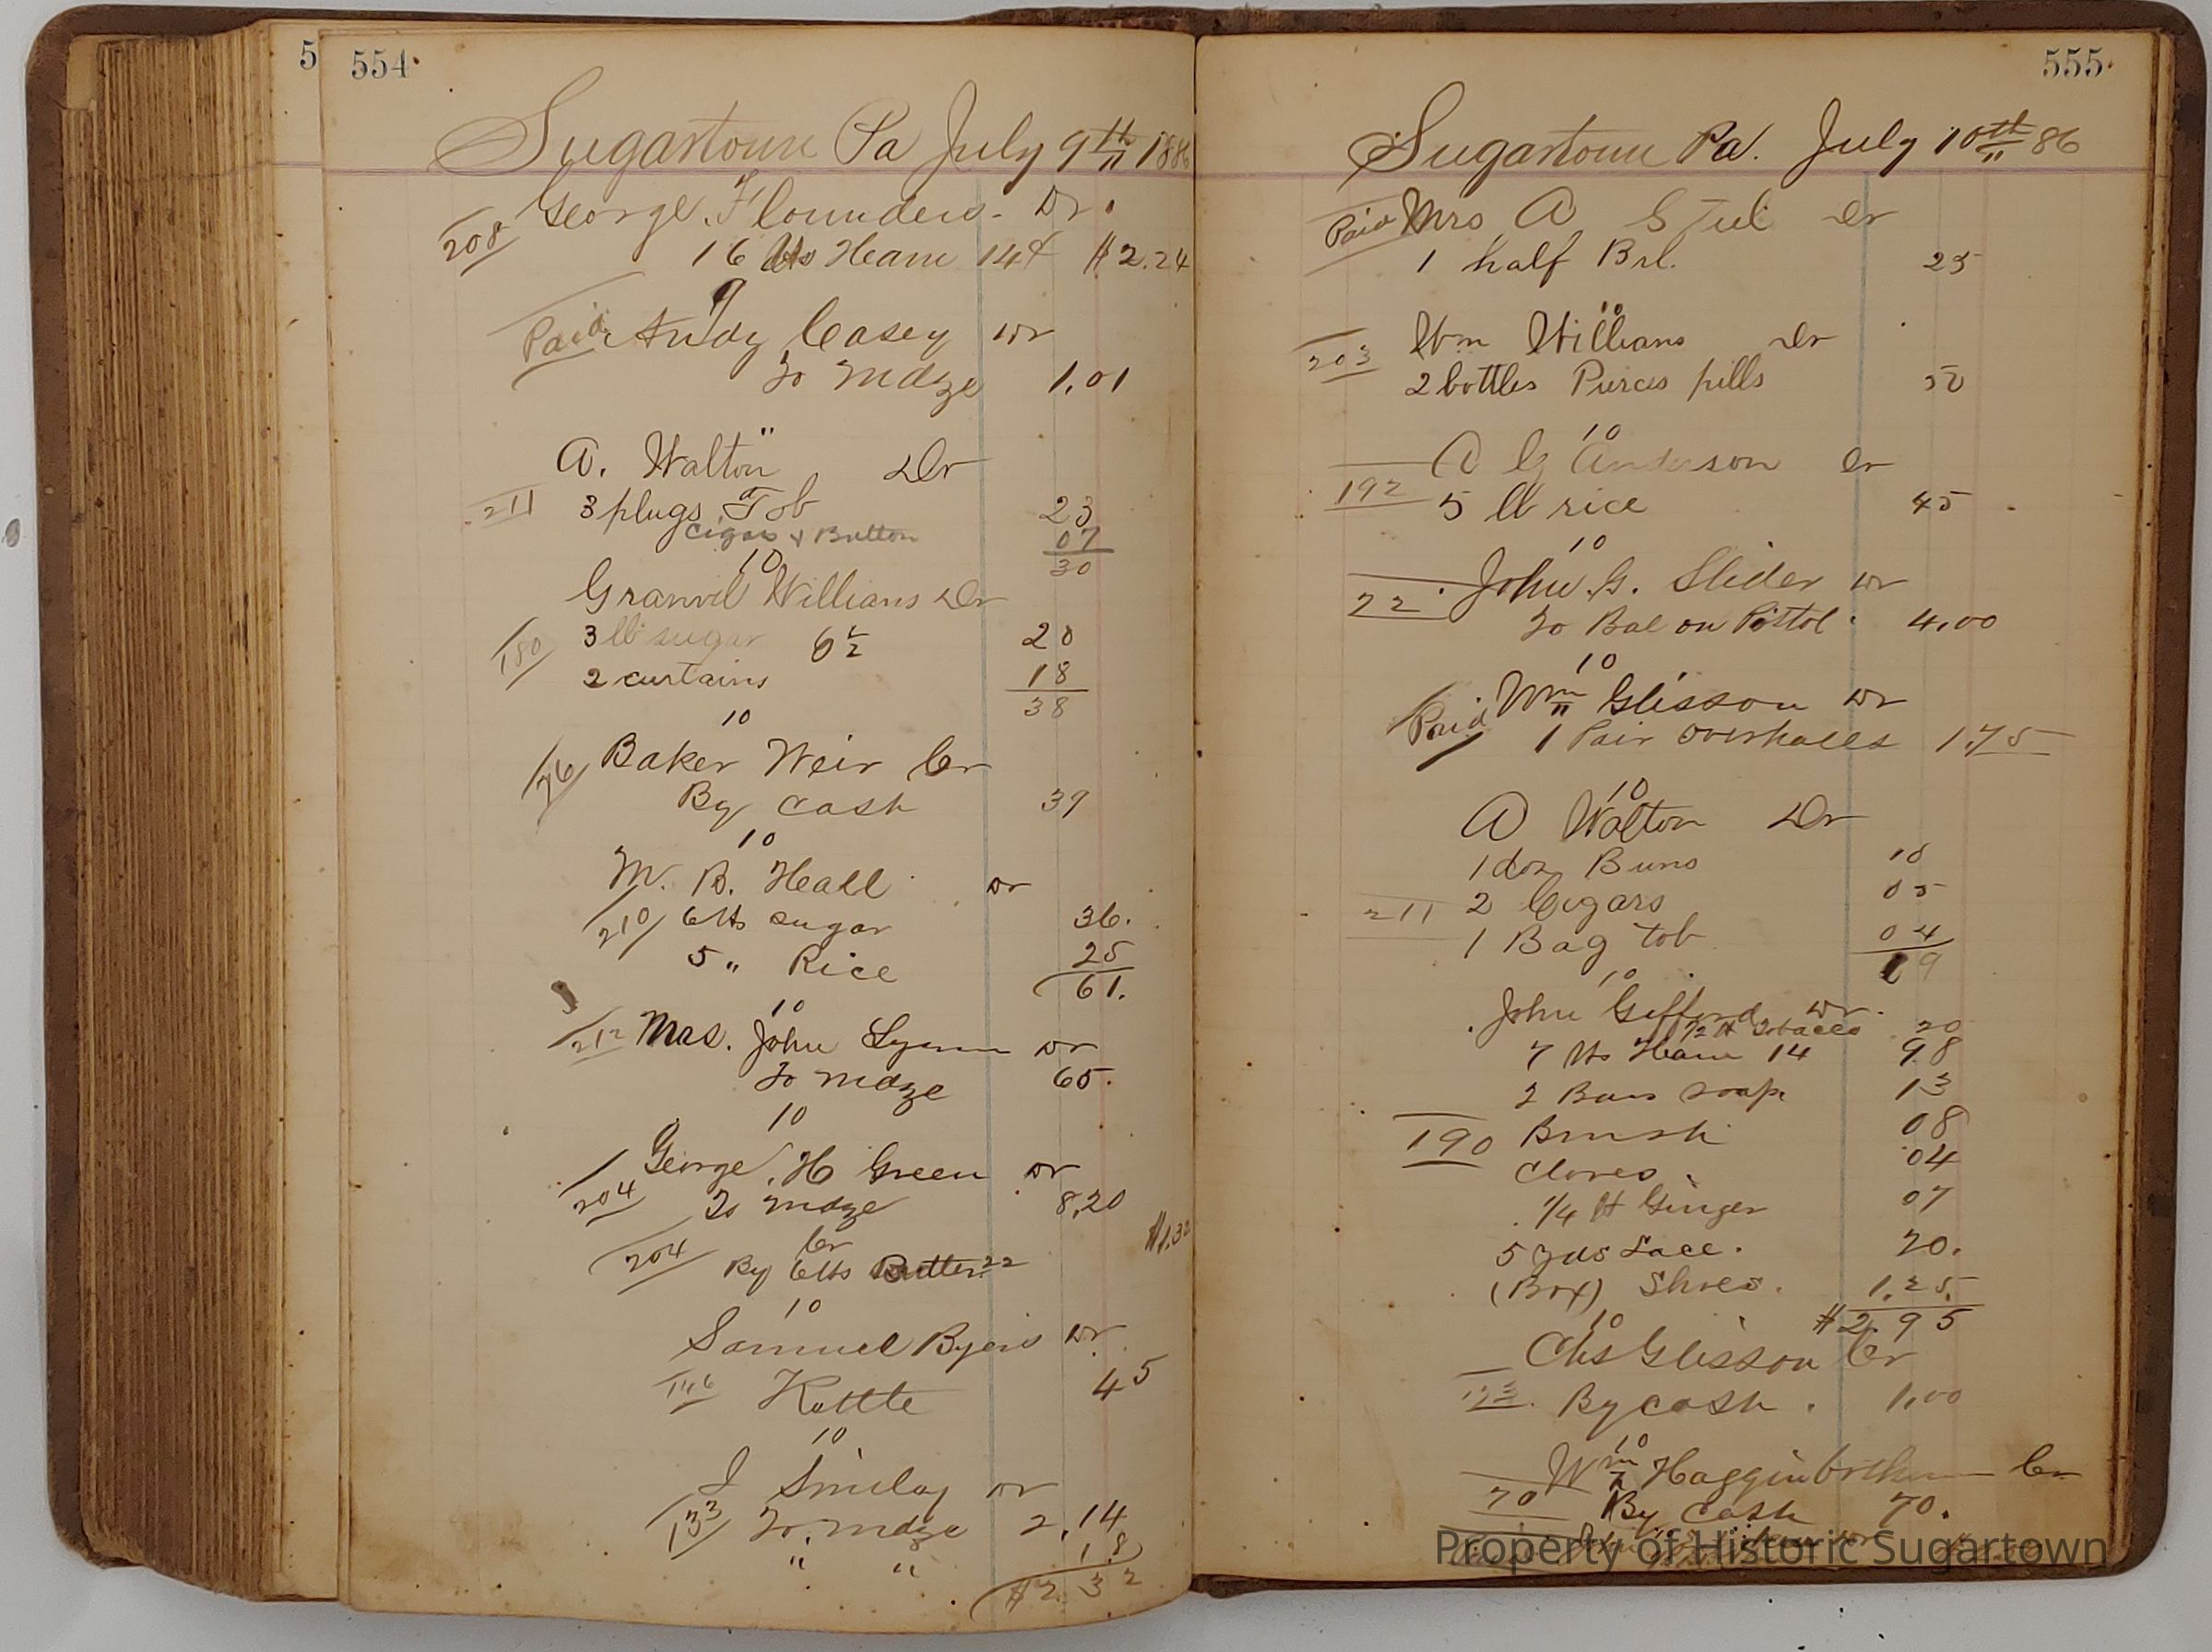 5 554
Sugartown Pa July 9th 1886
George Flounders Dr
208 16 lbs Ham 14¢ $2.24
9
Paid Andy Casey Dr
To Mdze 1.01
"
A. Walton Dr
211 3 plugs Tob 23
Cigars & Button 07
30
10
Granvil Willians Dr
180 3 lb sugar 6½ 20
2 curtains 18
38
10
76 Baker Weir Cr
By Cash 39
10
M. B. Heall Dr
210 6 lbs sugar 36.
5 " Rice 25
61.
10
212 Mrs. John Lynn Dr
To Mdze 65.
10
George H Green Dr
204 To Mdze 8.20
Cr $1.32
204 By 6 lbs Butter 22
10
Samuel Byers Dr
146 Kettle 45
10
J Smiley Dr
133 To Mdze 2.14
" " 18
$2.32
555
Sugartown Pa. July 10th 86
Paid Mrs A Dr
1 half Brl. 25
10
Wm Willians Dr
203 2 bottles Purces pills 50
10
A G Anderson Dr
192 5 lb rice 45
10
John G. Slider Dr
22 To Bal on Pistol. 4.00
10
Wm Glisson Dr
Paid 1 Pair overhalls 1.75
10
A Walton Dr
1 doz Buns 10
211 2 Cigars 05
1 Bag tob 04
19
10
John Gifford Dr.
1/2 # Tobacco 20
7 lbs Ham 14 98
2 Bars soap 13
190 Brush 08
Cloves. 04
1/4 # Ginger 07
5 yds Lace. 20.
(Box) Shoes. 1.25.
$2.95
10
Chs Glisson Cr
123 By cash. 1.00
10
Wm Hagginbothum Cr
70 By Cash 70.
Property of Historic Sugartown